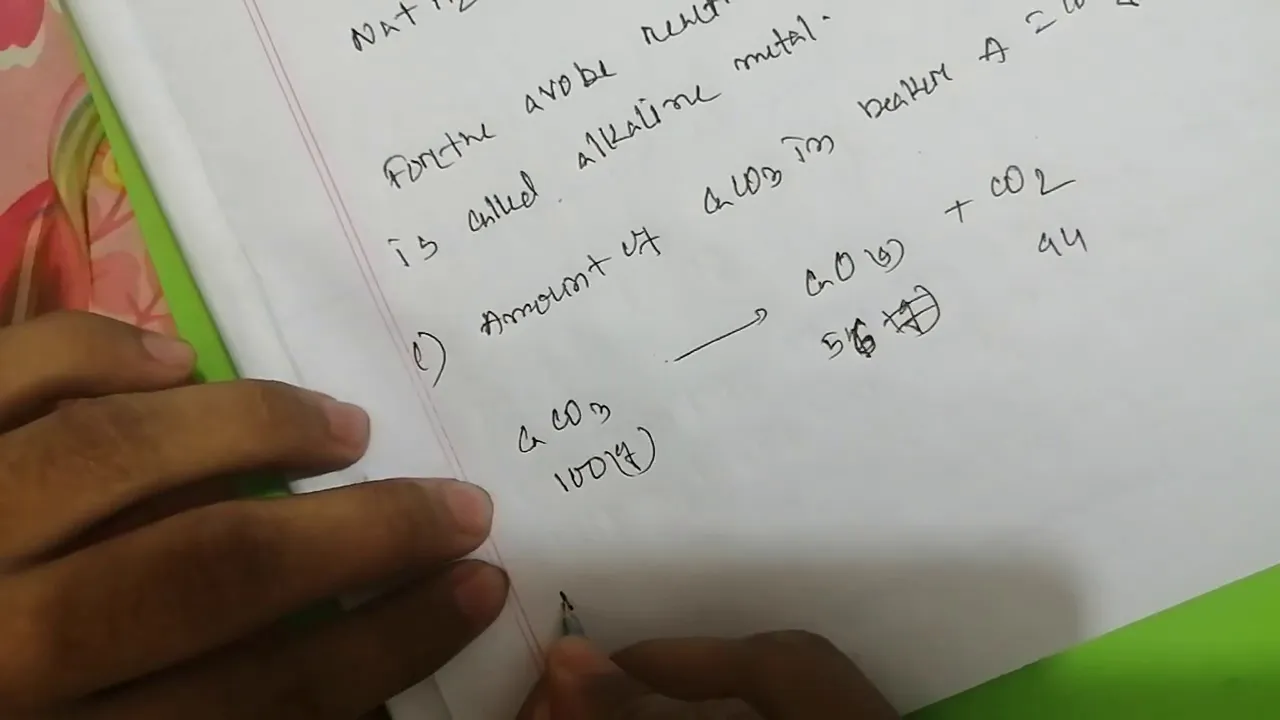 Na + H2
For the avobe react
is called alkaline metal.
c) Amount of CaCO3 in beaker A = 10
CaCO3 → CaO(s) + CO2
100(g) 56 44